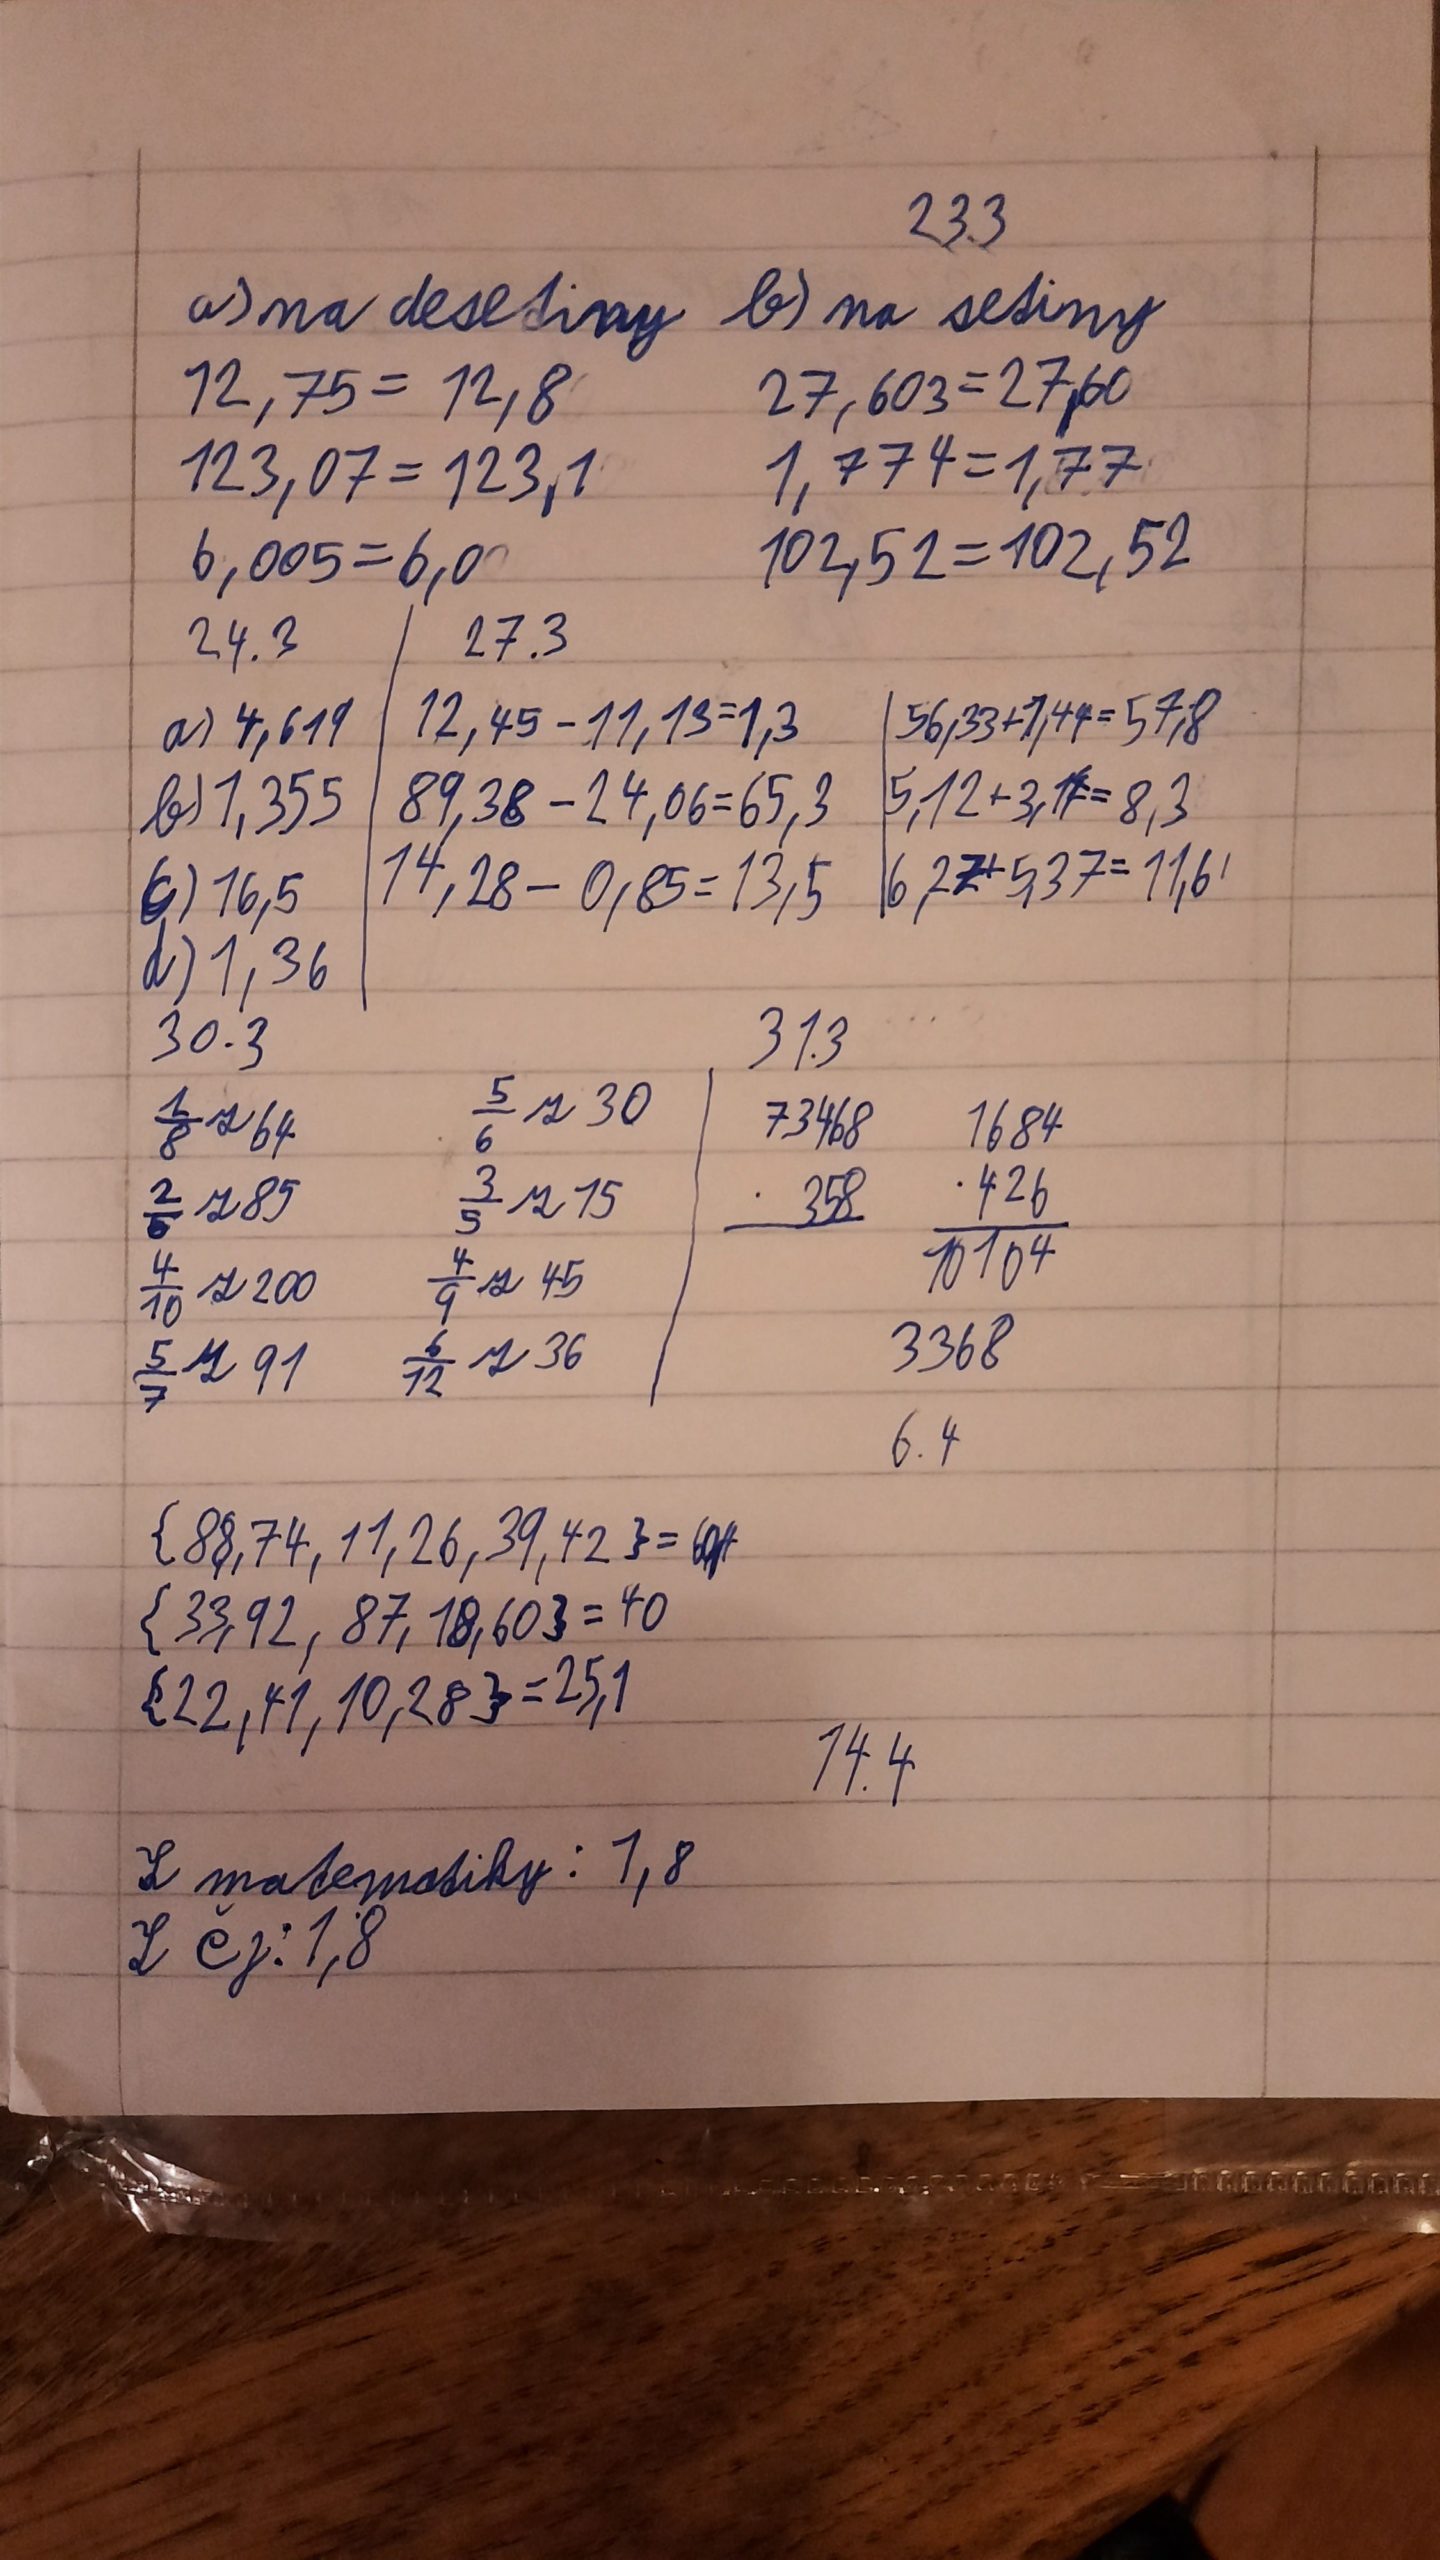 23.3
a) na desetiny b) na setiny
12,75 = 12,8 27,603 = 27,60
123,07 = 123,1 1,774 = 1,77
6,005 = 6,0 102,52 = 102,52
24.3 27.3
a) 4,619 12,45 - 11,13 = 1,3 56,33 + 1,44 = 57,8
b) 1,355 89,38 - 24,06 = 65,3 5,12 + 3,17 = 8,3
c) 16,5 14,28 - 0,85 = 13,5 6,27 + 5,37 = 11,6
d) 1,36
30.3 31.3
1/8 z 64 5/6 z 30 73468 1684
2/5 z 85 3/5 z 15 · 358 · 426
4/10 z 200 4/9 z 45 10104
5/7 z 91 6/12 z 36 3368
6.4
{88,74, 11,26, 39,42} =
{33,92, 87,18,60} = 40
{22,41,10,28} = 25,1
14.4
Z matematiky: 1,8
Z čj: 1,8